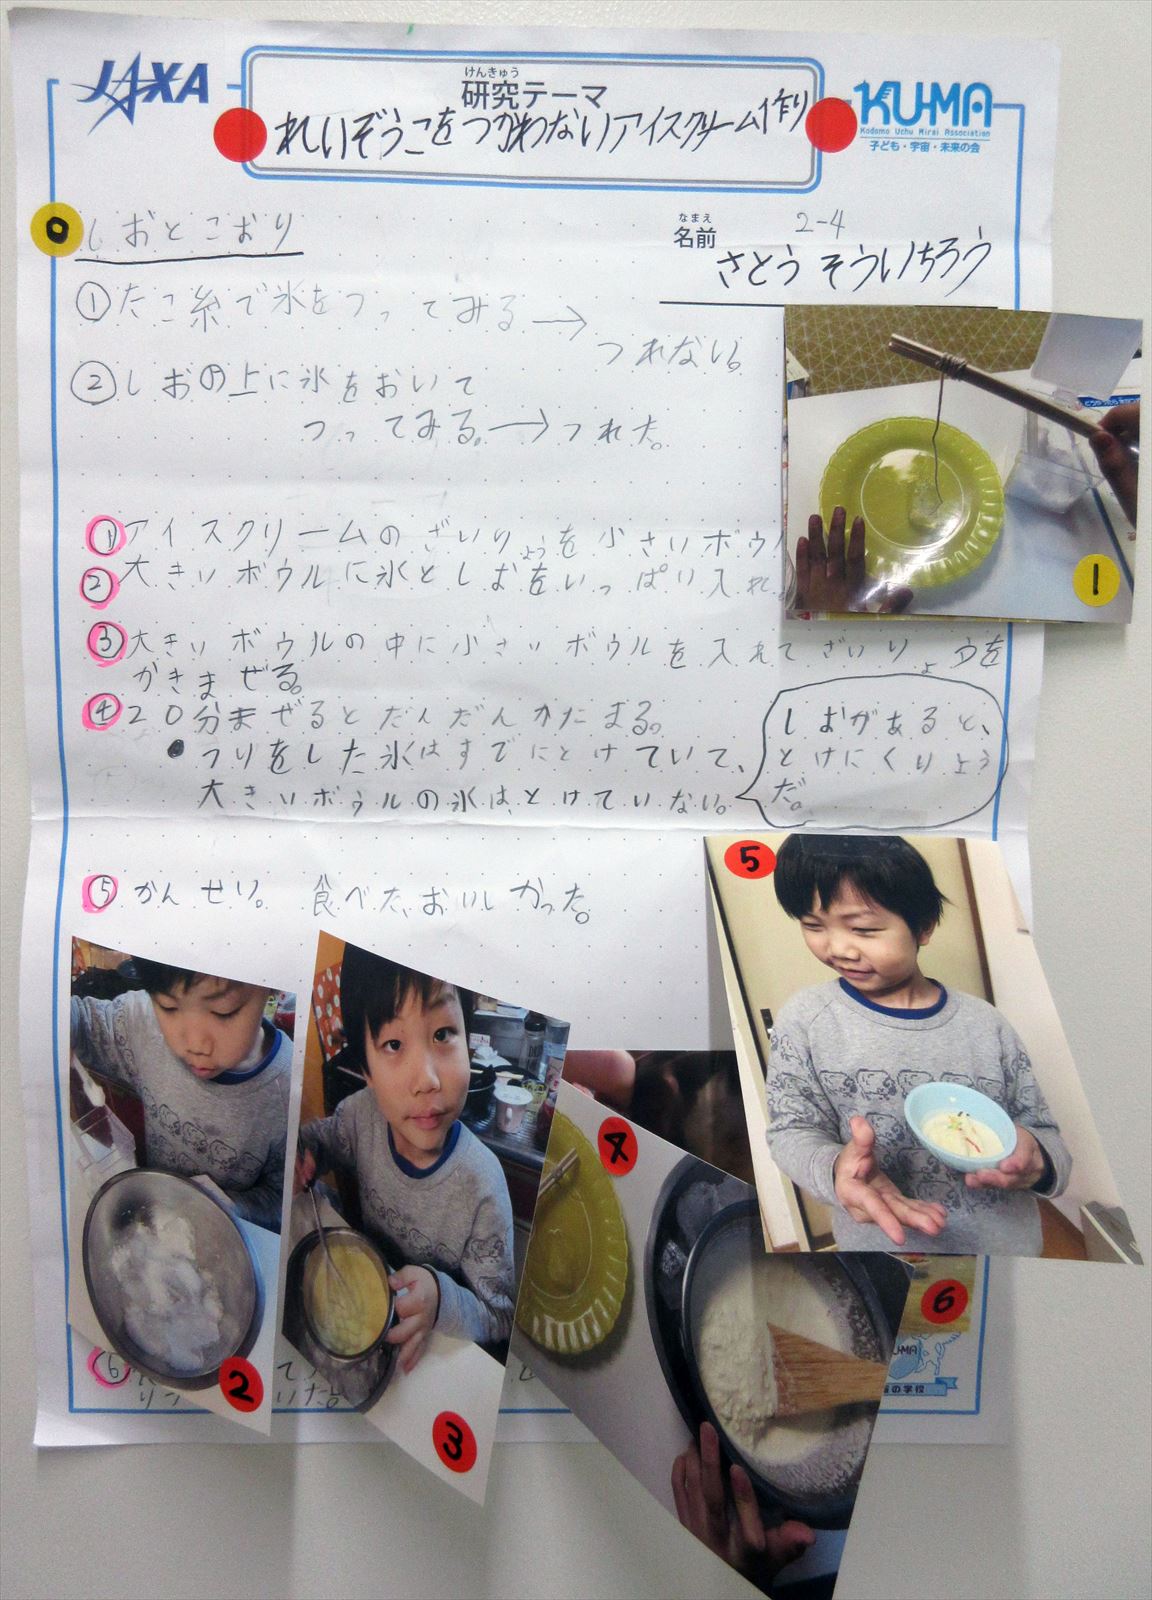 JAXA
けんきゅう
研究テーマ
れいぞうこをつかわないアイスクリーム作り
KU-MA
Kodomo Uchu Mirai Association
子ども・宇宙・未来の会
0
しおとこおり
なまえ
名前
2-4
さとう そういちろう
①たこ糸で氷をつってみる→
つれない。
②しおの上に氷をおいて
つってみる。→つれた。
①アイスクリームのざいりょうを小さいボウ
②大きいボウルに氷としおをいっぱい入れ
1
③大きいボウルの中に小さいボウルを入れてざいりょうを
かきまぜる。
④20分まぜるとだんだんかたまる。
●つりをした氷はすでにとけていて、
大きいボウルの氷は、とけていない。
しおがあると、
とけにくりよう
だ。
⑤かんせい。食べた、おいしかった。
5
4
6
2
3
⑥
いた。
の学校